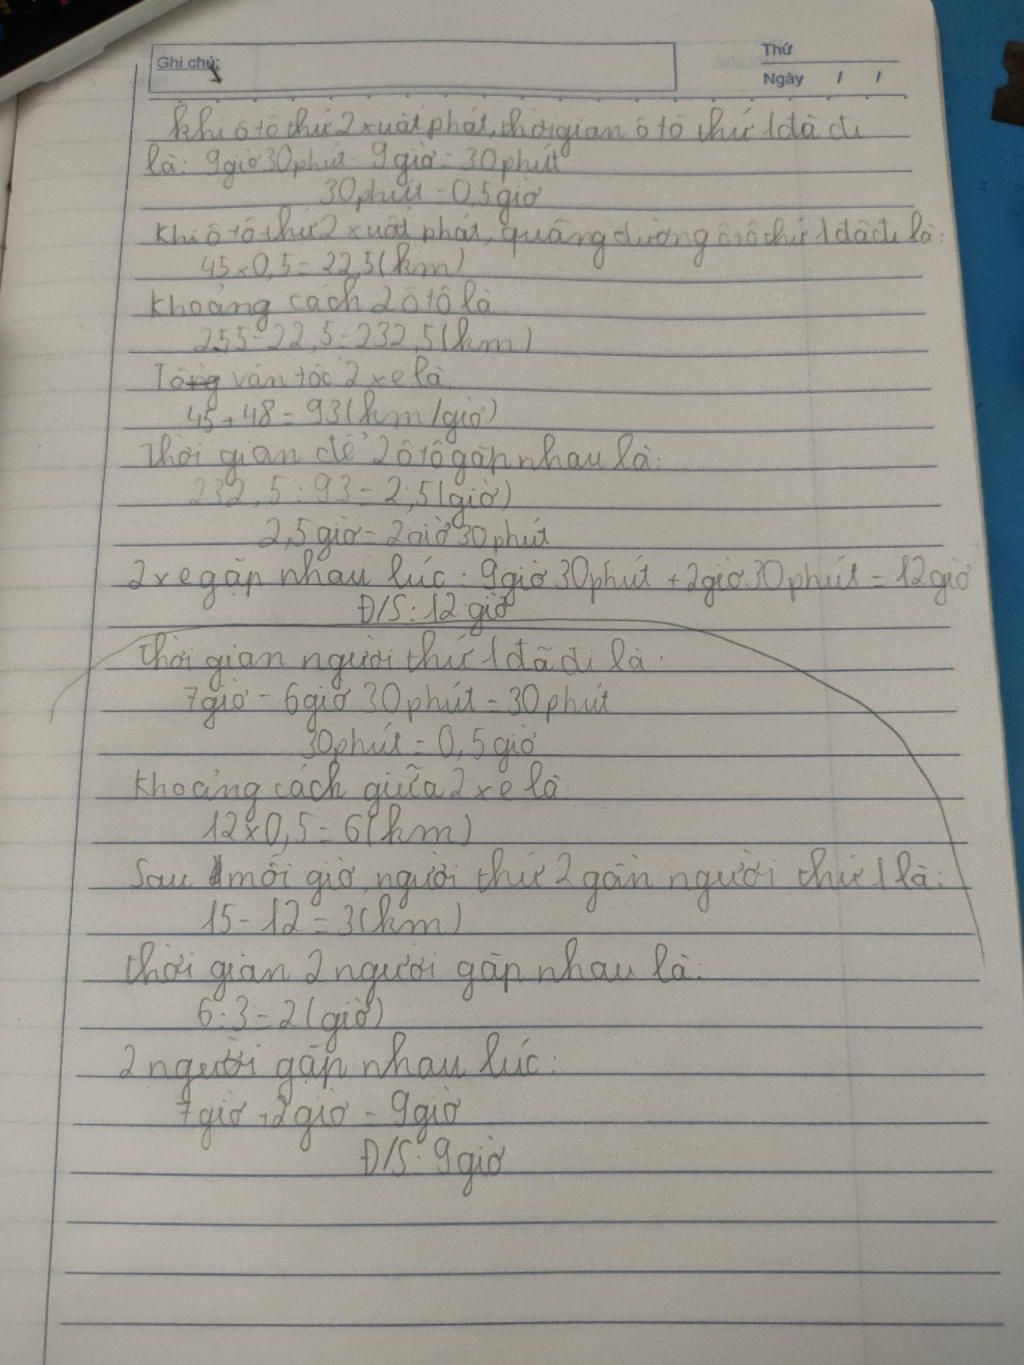 Ghi chú:
Thứ
Ngày / /
Khi ô tô thứ 2 xuất phát, thời gian ô tô thứ 1 đã đi
là: 9 giờ 30 phút - 9 giờ = 30 phút
30 phút = 0,5 giờ
Khi ô tô thứ 2 xuất phát, quãng đường ô tô thứ 1 đã đi là:
45 x 0,5 = 22,5 (km)
Khoảng cách 2 ô tô là
255 - 22,5 = 232,5 (km)
Tổng vận tốc 2 xe là
45 + 48 = 93 (km/giờ)
Thời gian để 2 ô tô gặp nhau là:
232,5 : 93 = 2,5 (giờ)
2,5 giờ = 2 giờ 30 phút
2 xe gặp nhau lúc: 9 giờ 30 phút + 2 giờ 30 phút = 12 giờ
Đ/S: 12 giờ
Thời gian người thứ 1 đã đi là:
7 giờ - 6 giờ 30 phút = 30 phút
30 phút = 0,5 giờ
Khoảng cách giữa 2 xe là:
12 x 0,5 = 6 (km)
Sau mỗi giờ, người thứ 2 gần người thứ 1 là:
15 - 12 = 3 (km)
Thời gian 2 người gặp nhau là:
6 : 3 = 2 (giờ)
2 người gặp nhau lúc:
7 giờ + 2 giờ = 9 giờ
Đ/S: 9 giờ